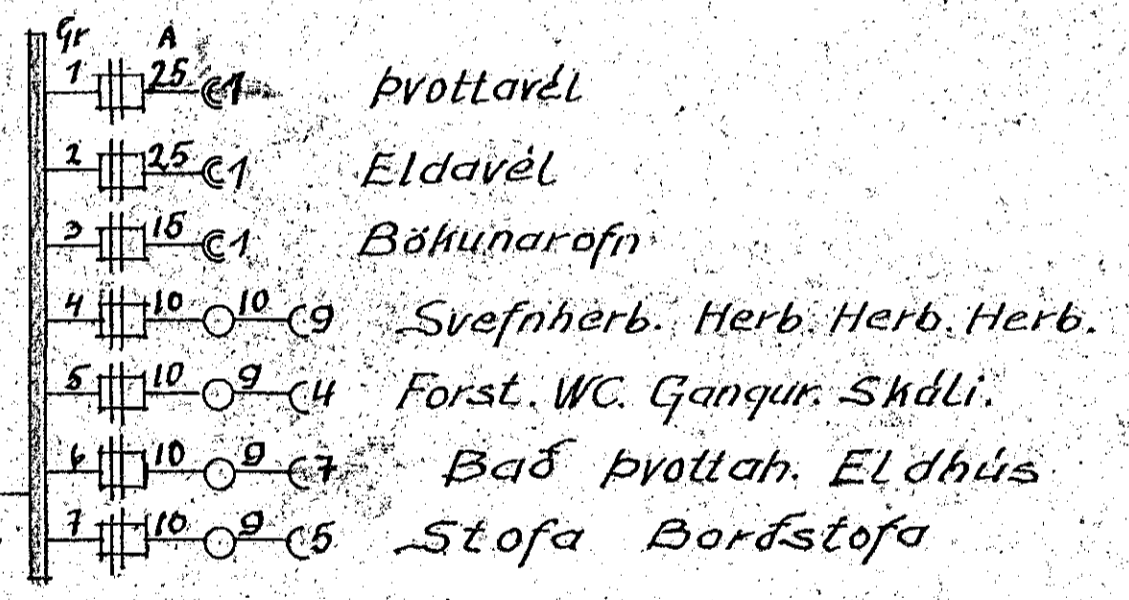 Gr A
1 25 1 Þvottavél
2 25 1 Eldavél
3 15 1 Bökunarofn
4 10 10 9 Svefnherb. Herb. Herb. Herb.
5 10 9 4 Forst. WC. Gangur. Skáli.
6 10 9 7 Bað Þvottah. Eldhús
7 10 9 5 Stofa Borðstofa